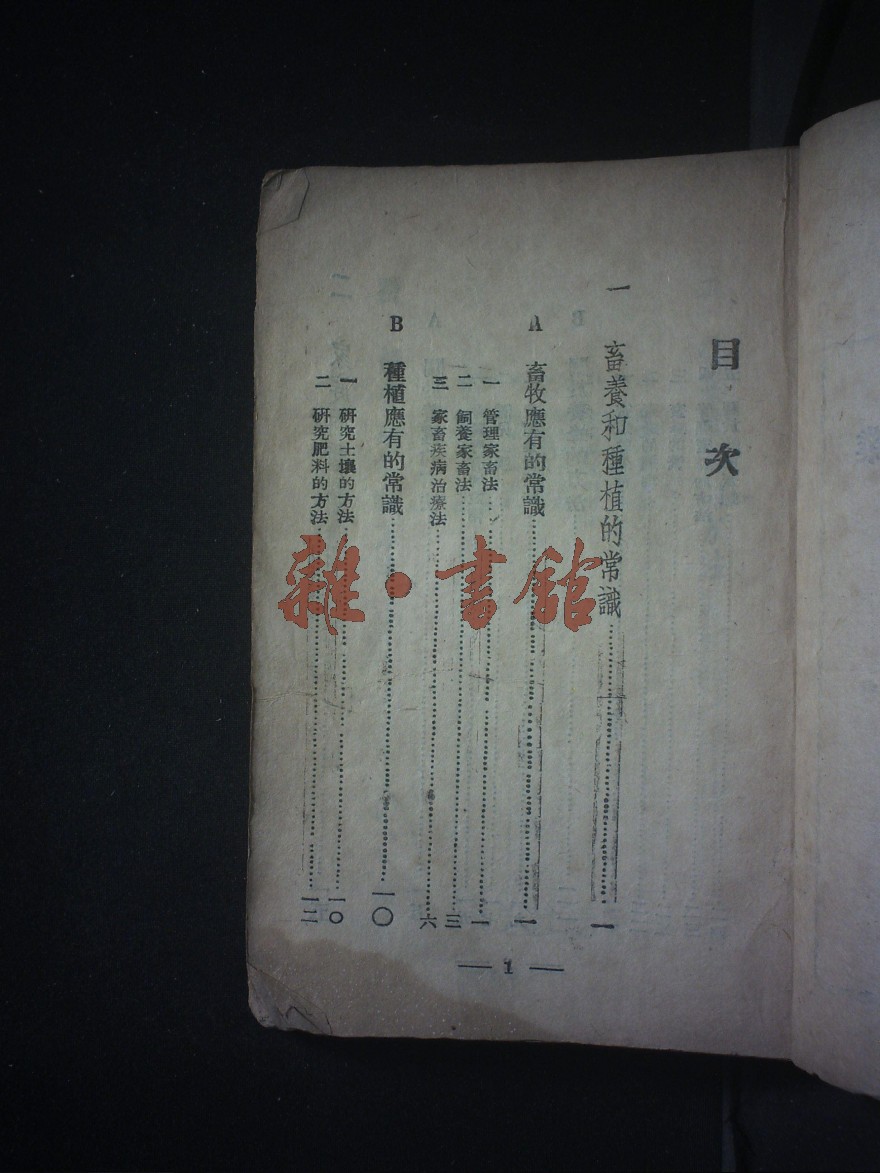 目次
一 畜養和種植的常識……一
A 畜牧應有的常識……一
一 管理家畜法……一
二 飼養家畜法……三
三 家畜疾病治療法……六
B 種植應有的常識……一〇
一 研究土壤的方法……一〇
二 研究肥料的方法……一二
— 1 —
雜·書館